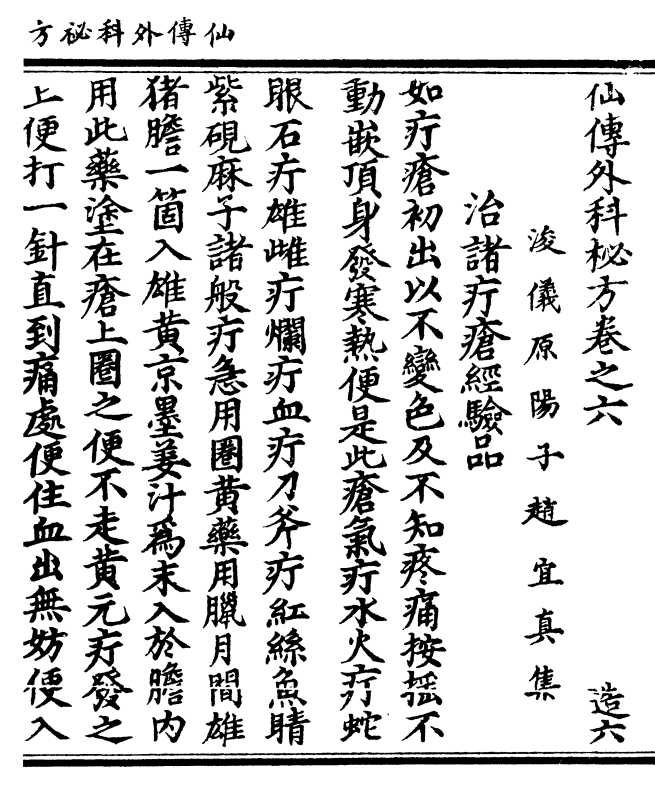 仙傳外科祕方
仙傳外科秘方卷之六 造六
浚儀原陽子趙宜真集
治諸疔瘡經驗品
如疔瘡初出以不變色及不知疼痛按搖不
動嵌頂身發寒熱便是此瘡氣疔水火疔蛇
眼石疔雄雌疔爛疔血疔刀斧疔紅絲魚睛
紫硯麻子諸般疔急用圈黃藥用臘月間雄
猪膽一箇入雄黃京墨姜汁爲末入於膽內
用此藥塗在瘡上圈之便不走黃元疔發之
上便打一針直到痛處便住血出無妨便入